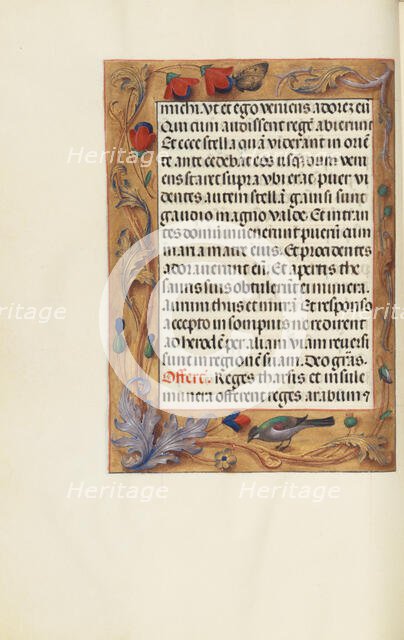 michi. Vt et ego veniens adorez eū
Qui cum audissent regē abierunt
Et ecce stella quā viderant in oriē
te antecedebat eos usq dum veni
ens staret supra vbi erat puer vi
dentes autem stellā gauisi sunt
gaudio magno valde. Et intran
tes domū inuenerunt puerū cum
maria matre eius. Et procidentes
adorauerunt eū. Et apertis the
sauris suis obtulerūt ei munera.
aurum thus et mirrā. Et responso
accepto in sompnis ne redirent
ad herodē per aliam viam reuersi
sunt in regionē suam. Deo grās.
Offere. Reges tharsis et insule
munera offerent reges arabum ⁊
Heritage
Heritage
Heritage
Heritage
Heritage
Heritage
Heritage
Heritage